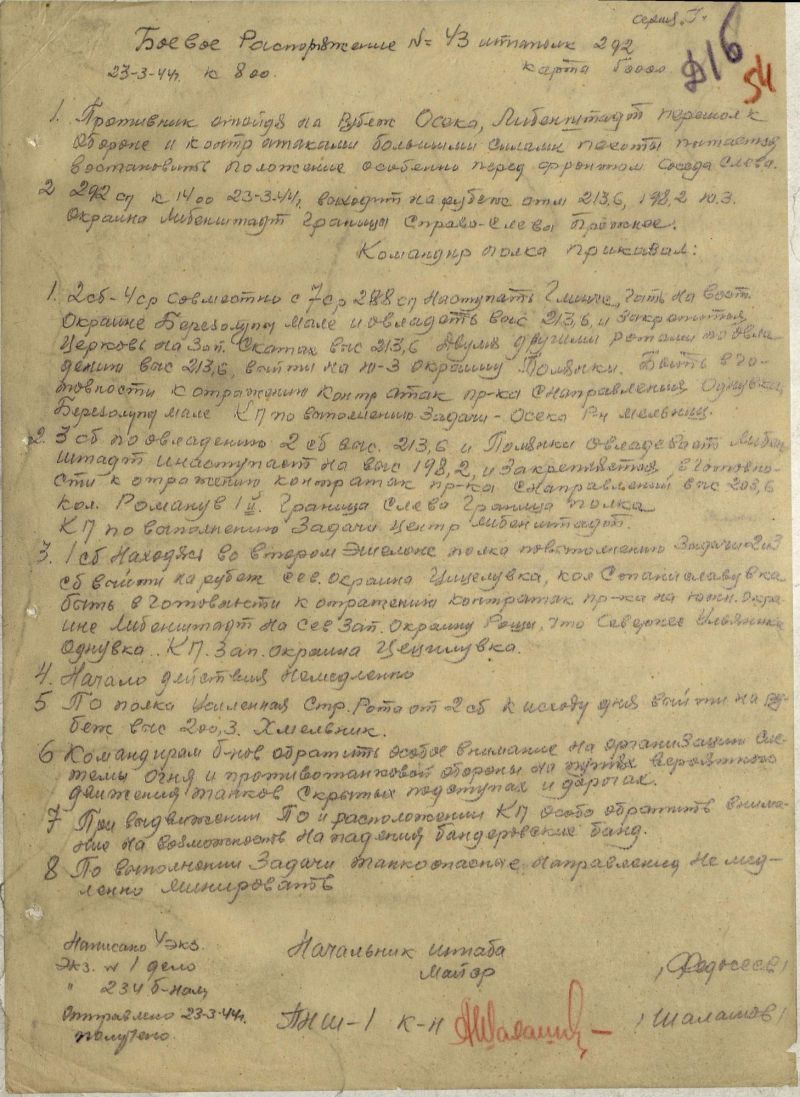 серия "Г"
Боевое Распоряжение № 43 штаполк 292
23-3-44г. к 8 00. карта 50000
16
54
1. Противник отойдя на рубеж Осека, Либенштадт перешол к
обороне и контр атаками большими силами пехоты питается
востановить положение особенно перед фронтом соседа слева.
2 292 сп к 14 00 23-3-44г. выходит на рубеж отм 213,6, 198,2 ю.З.
окраина Либенштадт Границы Справа-Слева Прежние.
Командир полка приказал:
1. 2сб-4ср совместно с 7ср 288 сп Наступать Часть на вост.
окраине Березолупы Мале и овладеть выс 213,6, и закрепится
Церковь на Зап. Скатах выс 213,6 Двумя другими ротами по овла-
дению выс 213,6, выйти на ю-З окраину Полянки. Быть в го-
товности к отражению контр атак пр-ка с направления Однувка,
Березолупы мале КП по выполнению задачи - Осека
2. 3 сб по овладению 2 сб выс. 213,6 и Полянки овладевает Либен
штадт и наступает на выс 198,2, и закрепляется, в готовно-
сти к отражению контратак пр-ка с направлений выс 203,6
кол. Романув 1й. Граница слева Граница полка
КП по выполнению задачи центр Либенштадт.
3. 1сб Находясь во втором эшелоне полка по выполнению Задачи 2и3
сб выйти на рубеж сев. окраина Цицелувка, кол Станиславувка
быть в готовности к отражению контратак пр-ка на южн. окра-
ине Либенштадт на сев Зап. окраину Рощи, что Севернее Ульяника
Однувка.. КП. Зап. окраина Цецилувка.
4. Начало действия Немедленно
5 ПО полка Усиленная Стр. Рота от 2сб к исходу дня выйти на ру-
беж выс 200,3. Хмельник.
6 Командирам б-нов обратить особое внимание на организацию сис-
темы огня и противотанковой обороны на путях вероятного
движения танков скрытых подступах и дорогах.
7 При выдвижении ПО и расположении КП особо обратить внима-
ние на возможность нападения бандеровские банд.
8 По выполнении Задачи танкоопасные направления немед-
ленно минировать
Написано 4 экз. Начальник штаба
Экз. № 1 дело Майор /Федосеев/
" 234 б-нам
Отправлено 23-3-44г. ПНШ-1 к-н Шалашов /Шалашов/
получено.